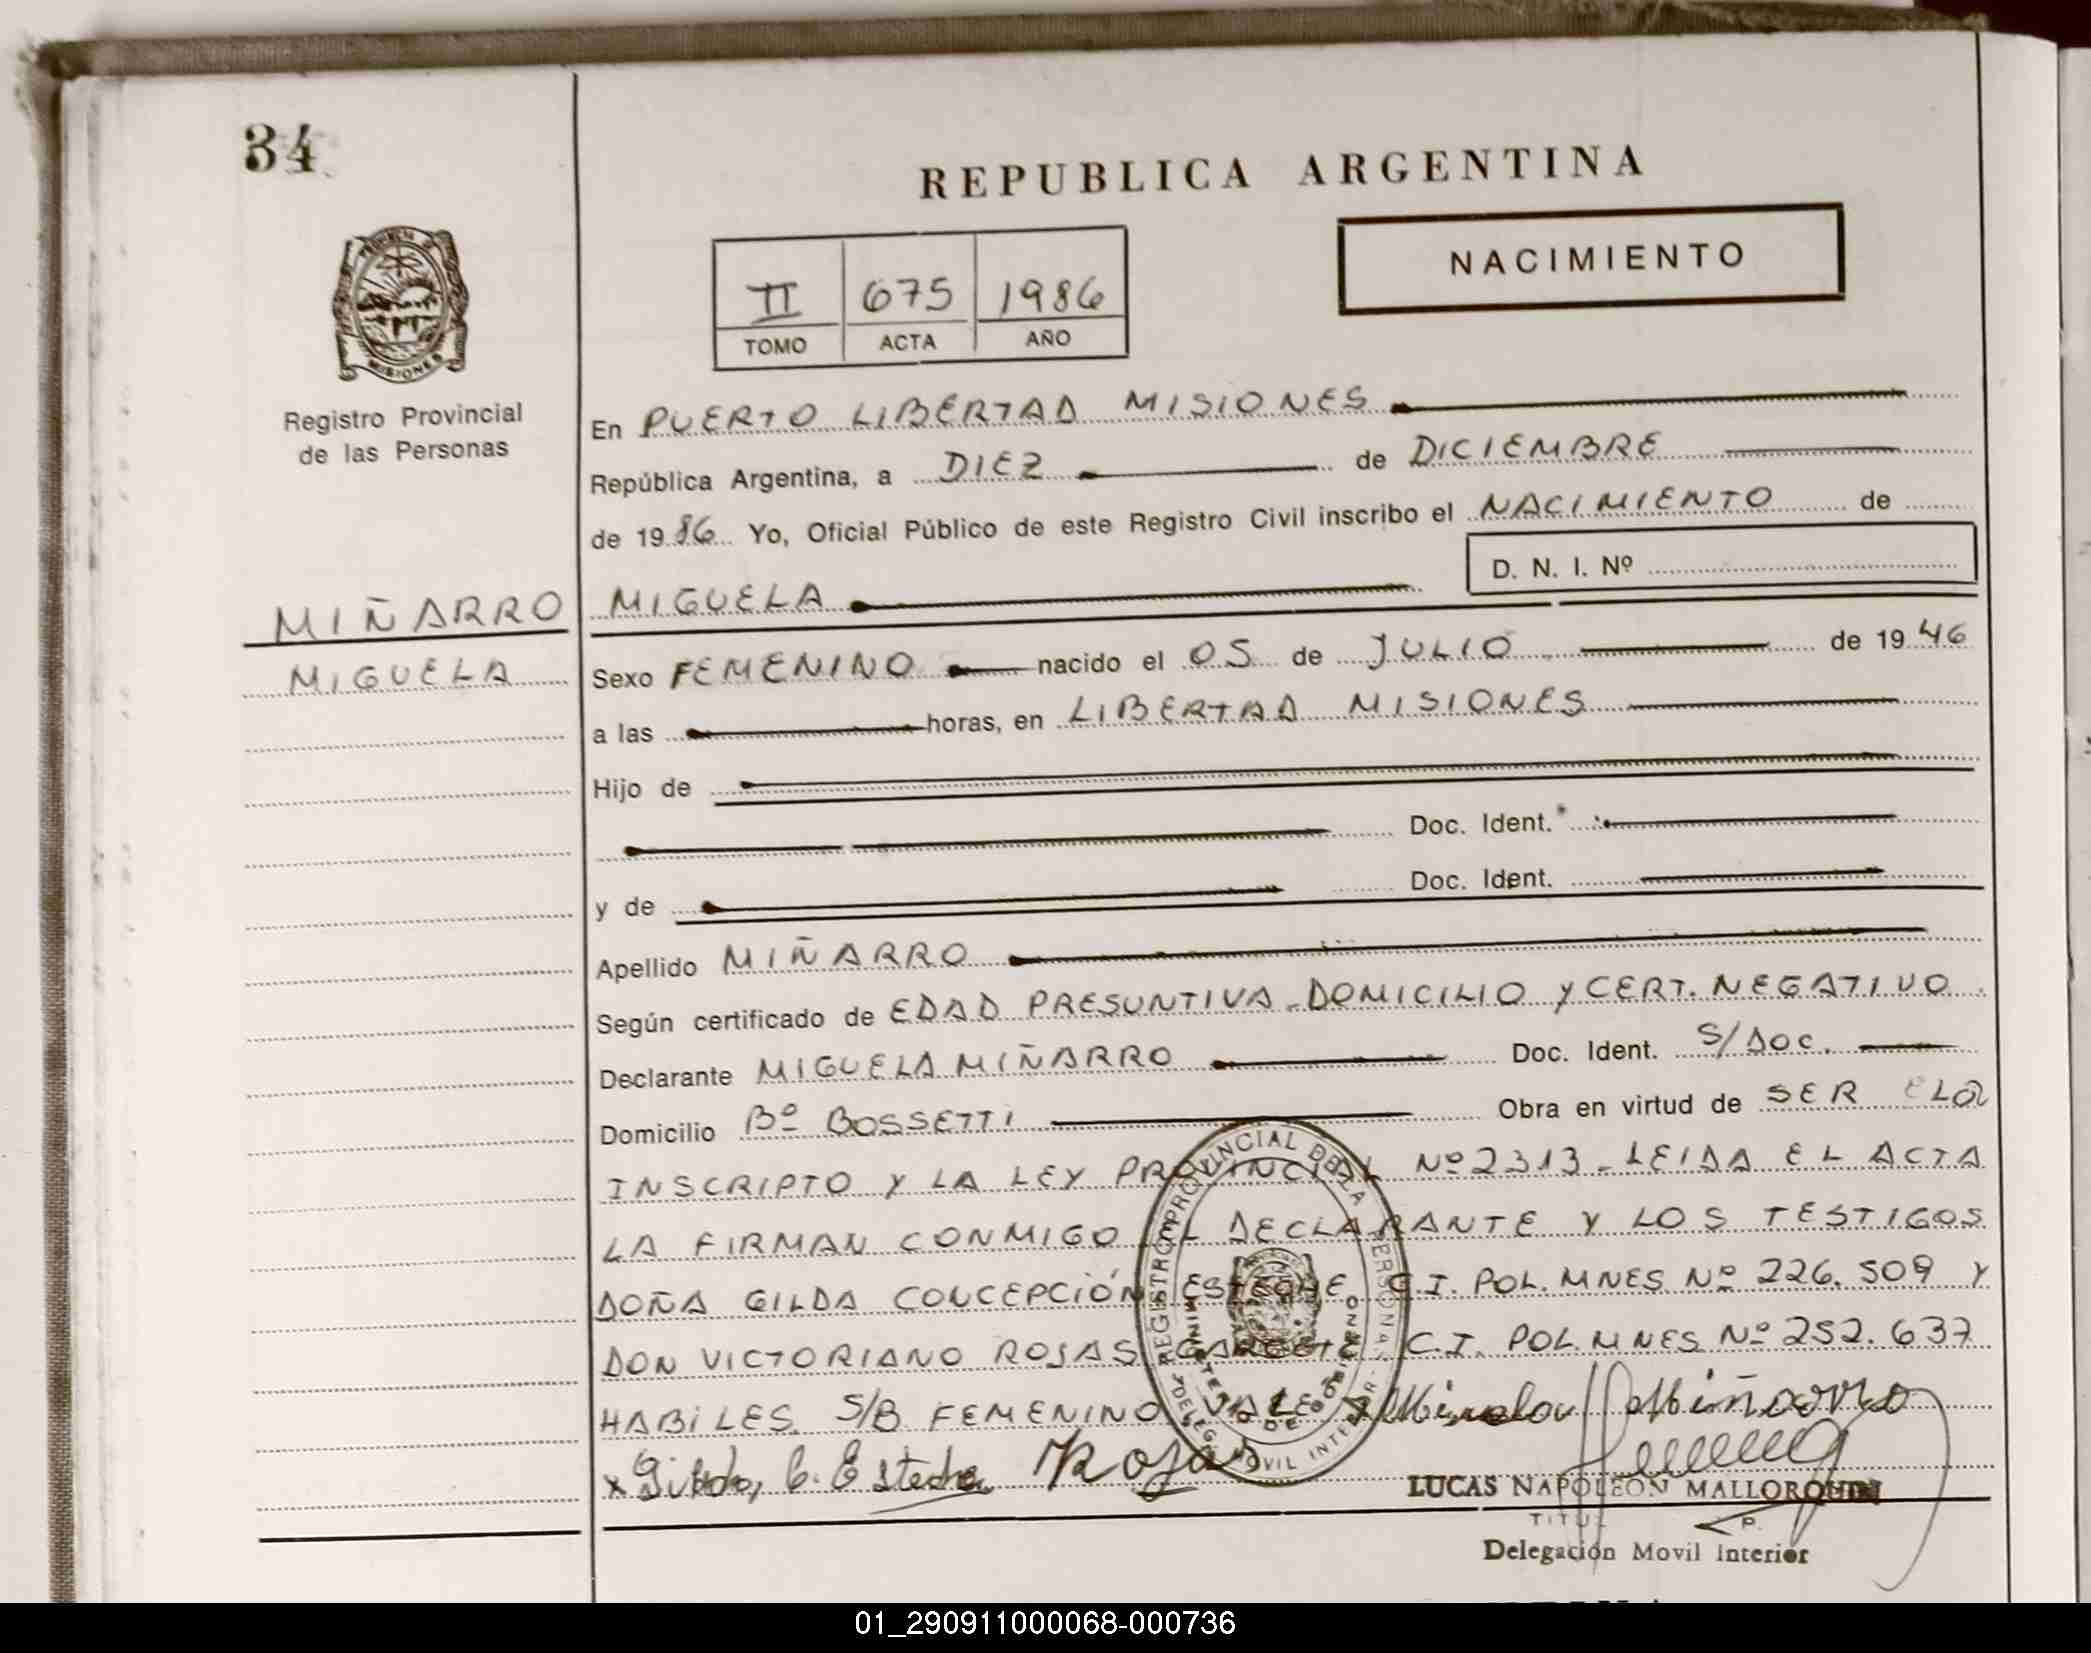 34
REPUBLICA ARGENTINA
NACIMIENTO
II 675 1986
TOMO ACTA AÑO
PROVINCIA DE
MISIONES
Registro Provincial
de las Personas
En PUERTO LIBERTAD MISIONES
República Argentina, a DIEZ de DICIEMBRE
de 1986 Yo, Oficial Público de este Registro Civil inscribo el NACIMIENTO de
D. N. I. Nº
MIÑARRO
MIGUELA
MIGUELA
Sexo FEMENINO nacido el 05 de JULIO de 1946
a las horas, en LIBERTAD MISIONES
Hijo de
Doc. Ident.
y de Doc. Ident.
Apellido MIÑARRO
Según certificado de EDAD PRESUNTIVA - DOMICILIO Y CERT. NEGATIVO
Declarante MIGUELA MIÑARRO Doc. Ident. S/DOC.
Domicilio Bº BOSSETTI Obra en virtud de SER EL
INSCRIPTO Y LA LEY PROVINCIAL Nº 2313 - LEIDA EL ACTA
LA FIRMAN CONMIGO EL DECLARANTE Y LOS TESTIGOS
DOÑA GILDA CONCEPCIÓN C.I. POL. MNES Nº 226.509 Y
DON VICTORIANO ROJAS C.I. POL. MNES Nº 252.637
HABILES. S/B FEMENINO VALE Miñarro
x Gilda C. Esteche Rojas
REGISTRO PROVINCIAL DE LAS PERSONAS
MINISTERIO DE GOBIERNO
DELEG. MOVIL INTERIOR
LUCAS NAPOLEON MALLORQUIN
Delegación Movil Interior
01_290911000068-000736